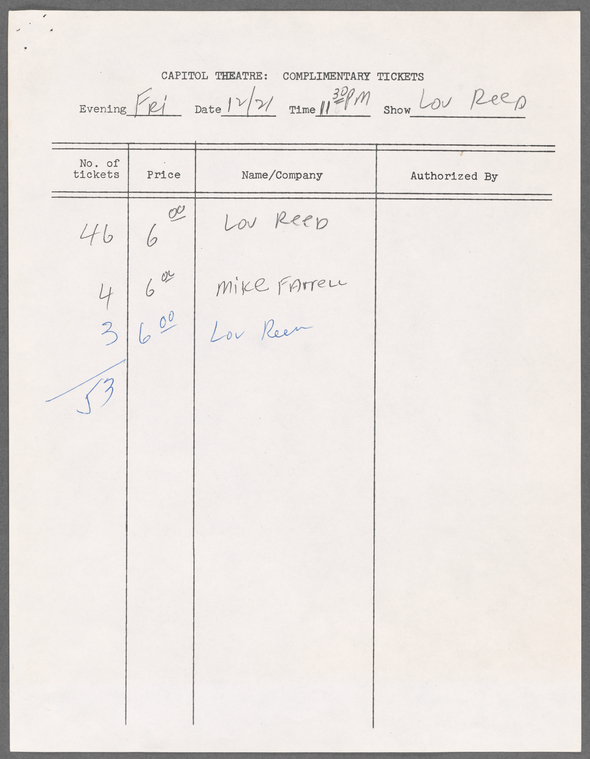 CAPITOL THEATRE: COMPLIMENTARY TICKETS
Evening Fri Date 12/21 Time 11 30 PM Show Lou Reed
No. of tickets Price Name/Company Authorized By
46 6 00 Lou Reed
4 6 00 Mike Farrell
3 6 00 Lou Reed
53